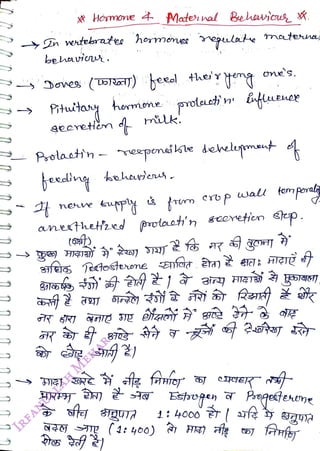 * Hormone & Maternal Behaviour *
→ In vertebrates hormones regulate maternal
behaviour.
→ Doves (फाख्ता) feed their yong one's.
→ Pituitary hormone prolactin influence
secretion of milk.
— Prolactin - responsible development of
feeding behaviour.
- If nerve supply is from crop wall temporally
anesthetized prolactin secretion stop.
(पक्षी)
→ कुछ मादाओं में देखा गया है कि नर की तुलना में
अधिक Testosterone स्त्रावित होता है अतः मादाएं ही
आकर्षक रंगों की होती है। वे अन्य मादाओं से मुकाबला
करती है तथा नरों को रिझाती है और
नर द्वारा बनाए गए घोंसलों में अण्डे देने के बाद
नर को ही अण्डे सेने व चूजों की देखरेख करने
को छोड़ जाती है।
→ मादा में नीड़ निर्माण का व्यवहार तभी
प्रारम्भ होता है जब Estrogen व Progesterone
के बीच अनुपात 1:4000 हो। यदि ये अनुपात
बदल जाए (1:400) तो मादा नीड़ का निर्माण
रोक देती है।